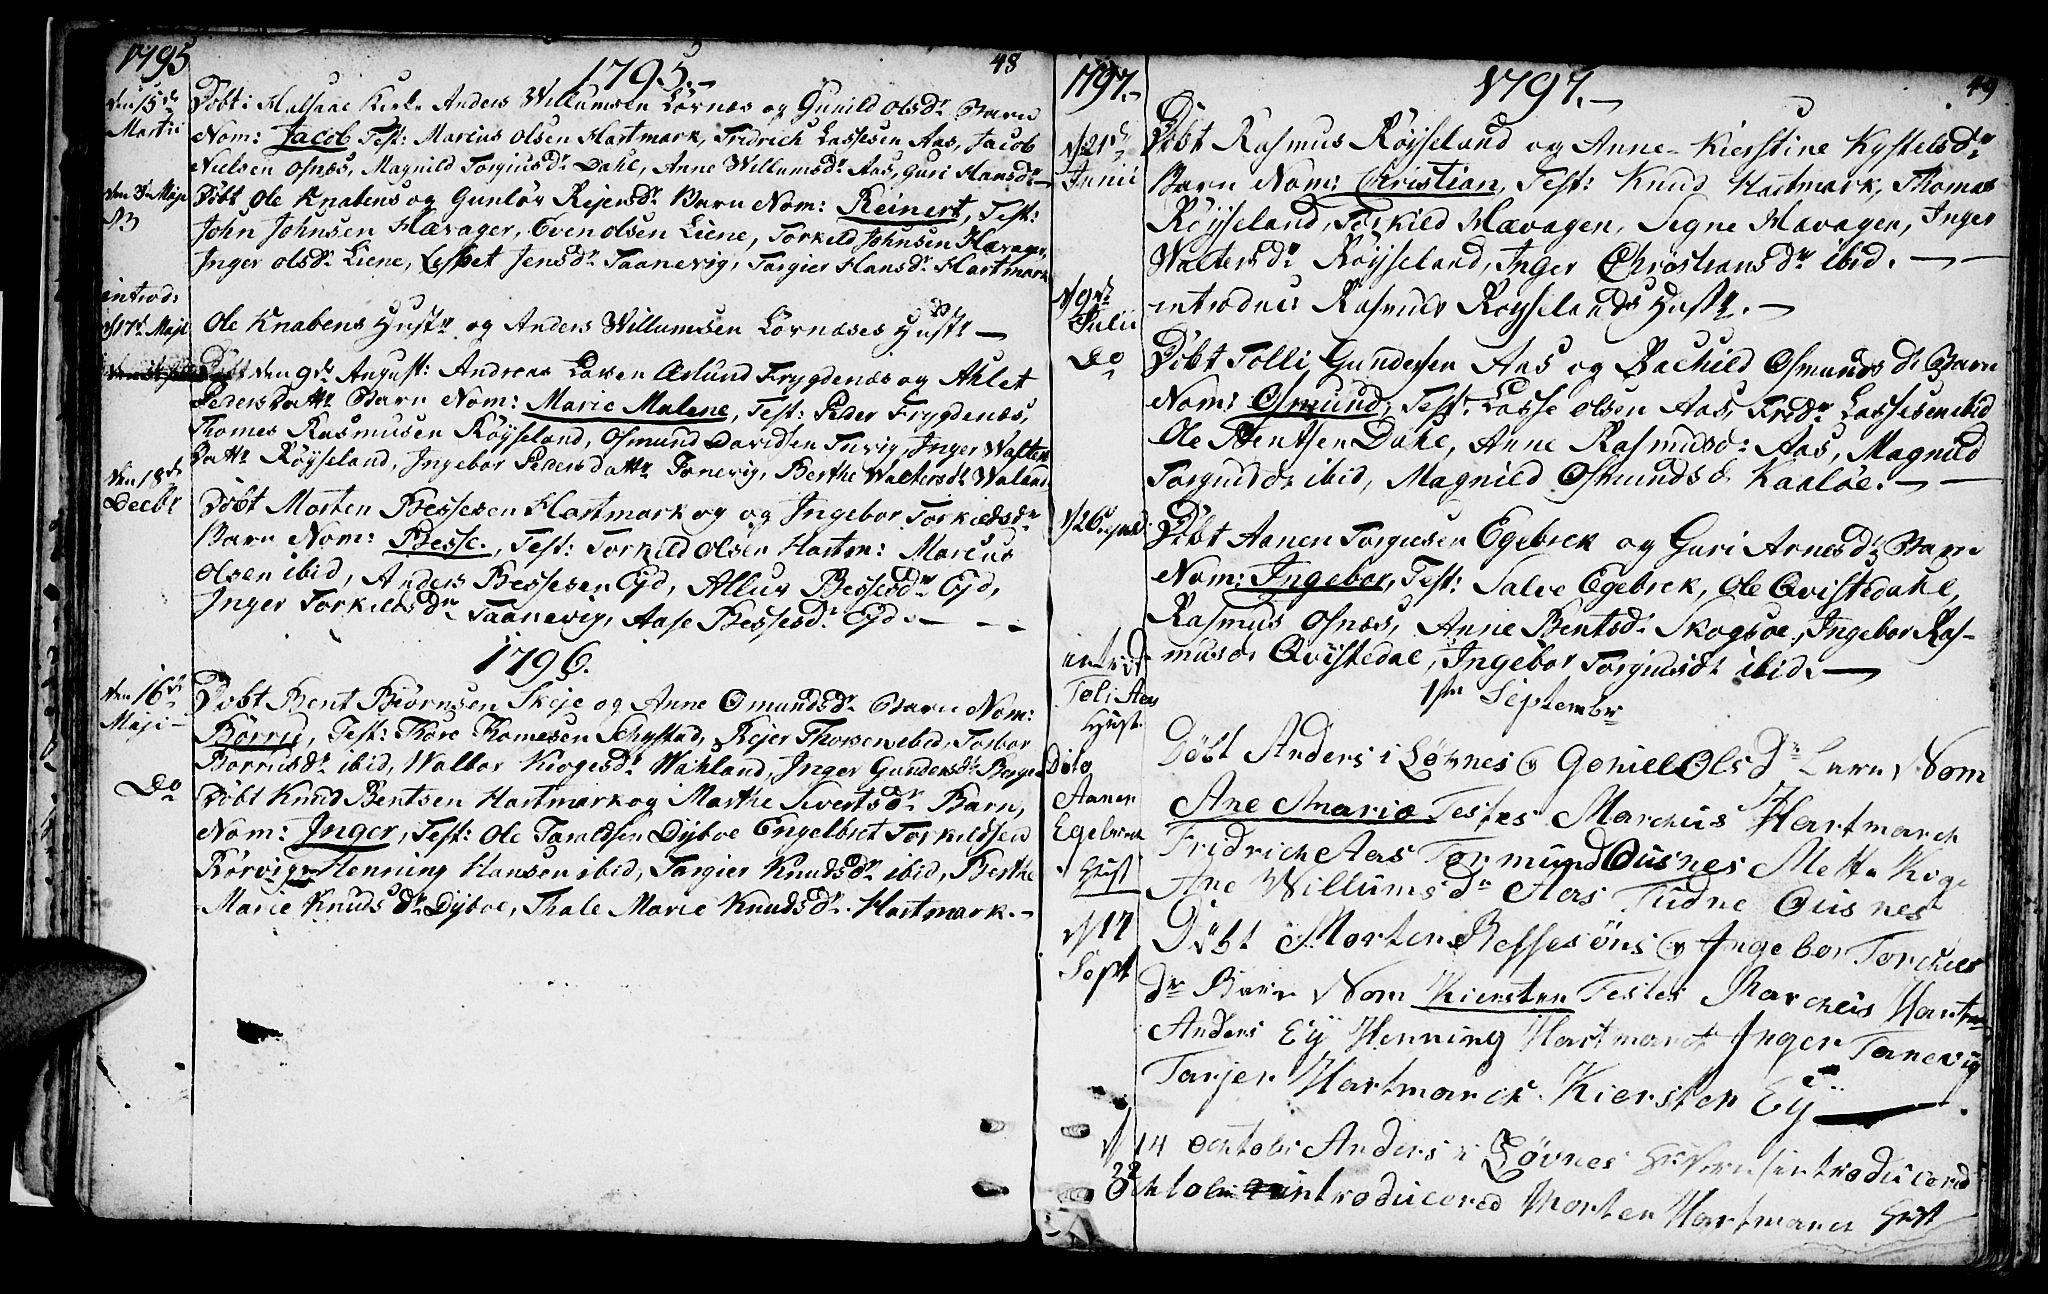 1795
1795.-
48
den 15de
Martii
Døbt i Halsaae Kirke Anders Willumsen Lørnæs og Gunild Olsdr Barn
Nom: Jacob Test: Marcus Olsen Hartmark, Fridrich Lassesen Aas, Jacob
Nielsen Osnæs, Magnild Torgiusdr Dahl, Anne Willumsdr Aas, Guri Hansdr
den 3de Maje
Døbt Ole Knabens og Gunlør Rejersdr Barn Nom: Reinert, Test:
John Johnsen Hævager, Even Olsen Liene, Torkild Johnsen Hævager,
Inger Olsdr Liene, Lisbet Jensdr Taanevig, Torgier Hansdr Hartmark
introd:
d 17de Maje
Ole Knabens Hustr og Anders Willumsen Lørnæses Hustr —
Døbt den 9de August: Andreas Aslund Frygdenæs og Ahlet
Pedersdattr Barn Nom: Marie Malene, Test: Peder Frygdenæs,
Thomes Rasmusen Røyseland, Osmund Davidsen Tuvig, Inger Walters
Dattr Røyseland, Ingebor Pedersdattr Tonevig, Berthe Waltersdr Waland
den 18de
Decbr
Døbt Morten Bessesen Hartmark og og Ingebor Torkildsdr
Barn Nom: Besse, Test: Torkild Olsen Hartm: Marcus
Olsen ibid, Anders Bessesen Ejd, Allus Bessesdr Ejd,
Inger Torkildsdr Taanevig, Aase Bessesdr Ejd. — —
1796.
den 16de
Maji
Døbt Bent Biørnsen Skeje og Anne Omundsdr Barn Nom:
Børru, Test: Thore Thomesen Schystad, Rejer Thorsen ibid, Torbor
Børrusdr ibid, Walbor Kiogesdr Wahland, Inger Gundersdr Borge
Do
Døbt Knud Bentsen Hartmark og Marthe Sivertsdr Barn,
Nom: Inger, Test: Ole Taraldsen Dyboe Engelbret Torkildsen
Rørvig, Henning Hansen ibid, Torgier Knudsdr ibid, Berthe
Marie Knudsdr Dyboe, Thale Marie Knudsdr Hartmark.-
1797.-
1797.-
49
d 21de
Junii
Døbt Rasmus Røysseland og Anne Kierstine Kystelsdr
Barn Nom: Christian, Test: Knud Hartmark, Thomas
Røysseland, Torkild Hævagen, Segne Hævagen, Inger
Waltersdr Røysseland, Inger Christiansdr ibid. — —
d 9de
Julii
introdus: Rasmus Røysselands Hustr. —
Do
Døbt Tolli Gundersen Aas og Bachild Osmundsdr Barn
Nom: Osmund, Test: Lasse Olsen Aas, Fridr Lassesen ibid
Ole Bentsen Dahl, Anne Rasmusd: Aas, Magnild
Torgiusd: ibid, Magnild Osmundsd Kaaløe. — —
Døbt Aanen Torgiusen Egebrek og Guri Arnesdr Barn
Nom: Ingebor, Test: Salve Egebrek, Ole Qvistedahl,
Rasmus Osnæs, Anne Bentsdr Skogsøe, Ingebor Ras-
musd: Qvistedal, Ingebor Torgiusdr ibid. —
introd:
Toli Aas
Hust.
1ste Septembr
Døbt Anders i Løvnes & Goniel Ols Dr barn Nom
Dito
Aanen
Egebreck
Hust
Ane Maria Testes Marchus Hartmarch
Fridrich Aas Tormund Ousnes Mette Kige
Ane Willumsdr Aas Tudne Ousnes
d 17
Sept
Døbt Morten Bessesøns & Ingebor Torchels
dr Barn Nom Kiersten Testes Marcheus Hartm
Anders Eij Henning Hartmarck Inger Tanevig
Tarjer Hartmarck Kiersten Eij —
d 14 Octobr Anders i Løvnes introducered
22 Octobr introducered Morten Hartmarck Hust